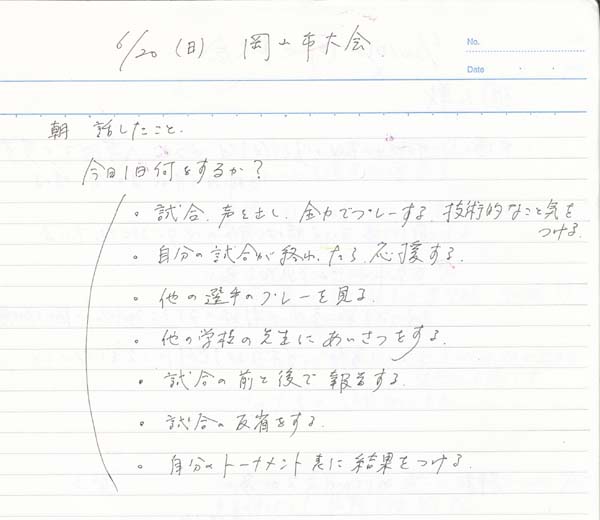 6/20 (日) 岡山市大会
No.
Date
朝 話したこと.
今日1日何をするか?
。試合、声を出し、全力でプレーする、技術的なこと気を
つける.
。自分の試合が終わったら、応援する.
。他の選手のプレーを見る.
。他の学校の先生にあいさつをする.
。試合の前と後で報告する.
。試合の反省をする.
。自分のトーナメント表に結果をつける.